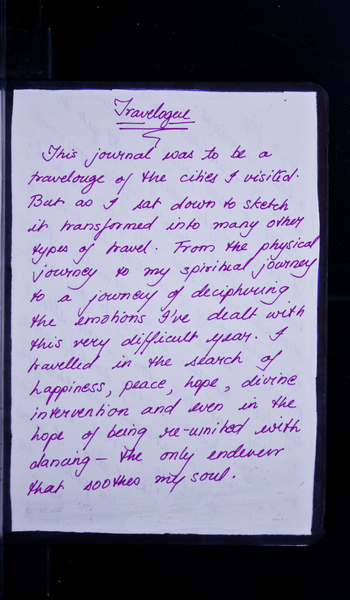 Travelogue
This journal was to be a
travelouge of the cities I visited.
But as I sat down to sketch
it transformed into many other
types of travel. From the physical
journey to my spiritual journey
to a journey of deciphering
the emotions I've dealt with
this very difficult year. I
travelled in the search of
happiness, peace, hope, divine
intervention and even in the
hope of being re-united with
dancing – the only endeverr
that soothes my soul.